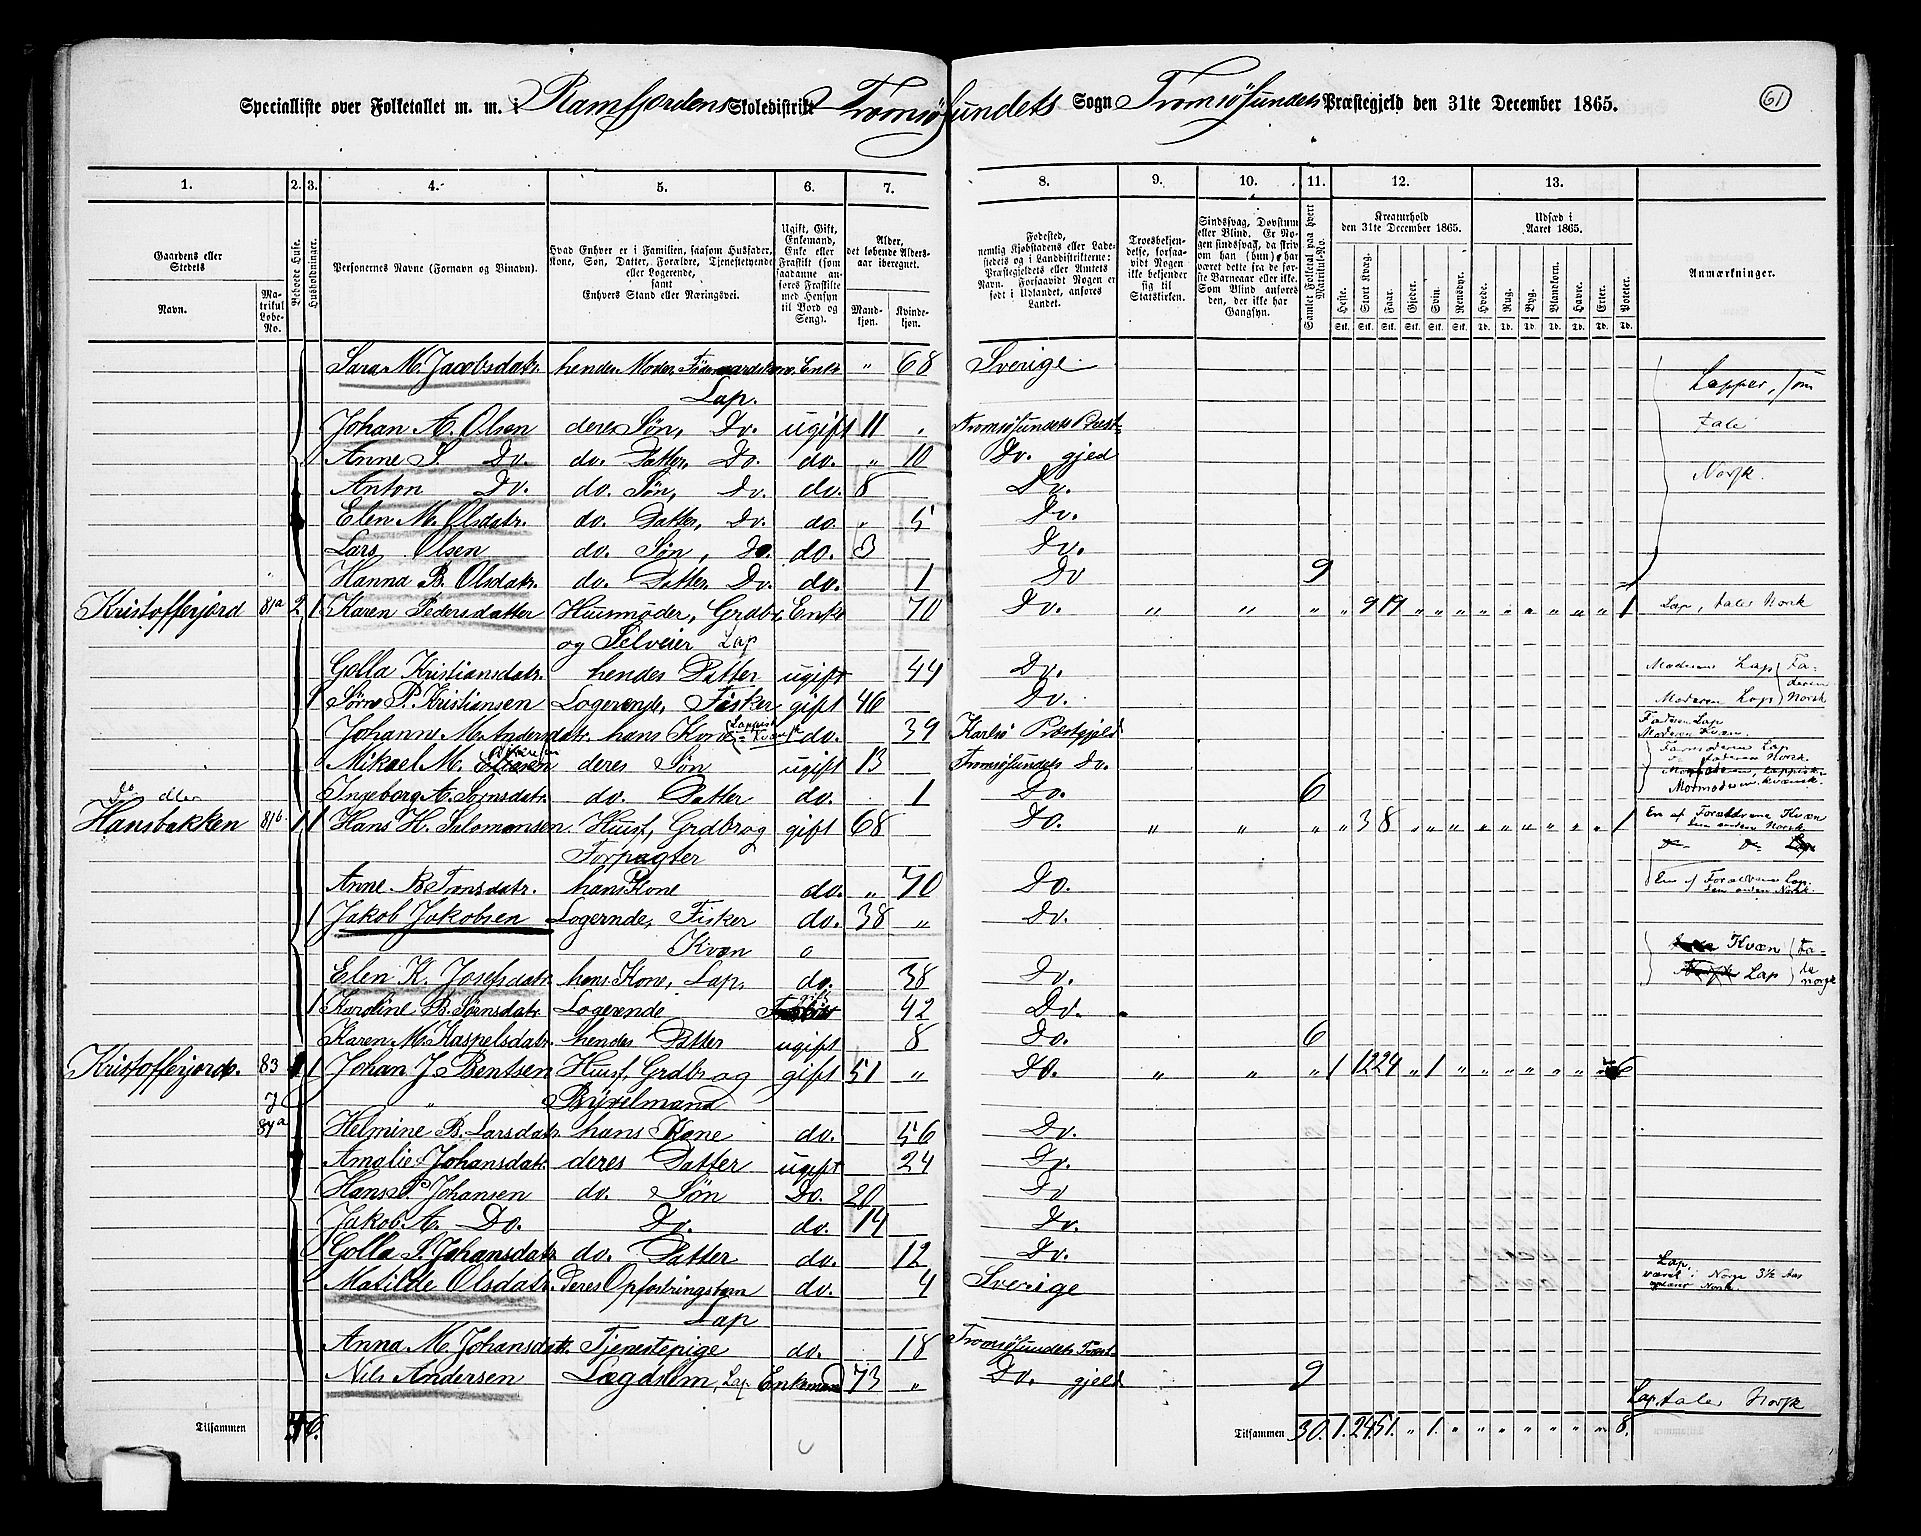 Specialliste over Folketallet m. m. i Ramfjordens Skoledistrikt Tromsøsundets Sogn Tromsøsundets Præstegjeld den 31te December 1865.
61
1. 2. 3. 4. 5. 6. 7. 8. 9. 10. 11. 12. 13.
Gaardens eller Stedets
Navn.
Matrikul Løbe-No.
Beboede Huse.
Husholdninger.
Personernes Navne (Fornavn og Binavn).
Hvad Enhver er i Familien, saasom Husfader, Kone, Søn, Datter, Forældre, Tjenestetyende eller Logerende, samt Enhvers Stand eller Næringsvei.
Ugift, Gift, Enkemand, Enke eller Fraskilt (som saadanne anføres Fraskilte med Hensyn til Bord og Seng).
Alder, det løbende Aldersaar iberegnet.
Mandkjøn.
Kvindekjøn.
Fødested, nemlig Kjøbstadens eller Ladestedets og i Landdistrikterne: Præstegjeldets eller Amtets Navn. Forsaavidt Nogen er født i Udlandet, anføres Landet.
Troesbekjendelse, forsaavidt Nogen ikke bekjender sig til Statskirken.
Sindssvag, Døvstum eller Blind. Er Nogen sindssvag, da skriv om han (hun) har været dette fra de første Barneaar eller ikke. Som Blind anføres den, der ikke har Gangsyn.
Samlet Folketal paa hvert Matrikul-No.
Kreaturhold den 31te December 1865.
Heste. Stort Kvæg. Faar. Gjeder. Svin. Rensdyr.
Udsæd i Aaret 1865.
Hvede. Rug. Byg. Blandkorn. Havre. Erter. Poteter.
Anmærkninger.
Sara M. Jacobsdatr. hendes Moder, Enke " 68 Sverige
Lap. Lapper, som
Johan A. Olsen deres Søn, Do. ugift 11 " Tromsøsundets Præst- tale
Anne S. Do. do. Datter, Do. do. " 10 Do. gjed Norsk.
Anton Do. do. Søn, Do. do. 8 Do.
Elen M. Olsdatr. do. Datter, Do. do. " 5 Do.
Lars Olsen do. Søn, Do. do. 3 Do.
Hanna B. Olsdatr. do. Datter Do. do. 1 Do 9
Kristofferjord 81a 2 1 Karen Pedersdatter Husmoder, Grdbr. Enke 70 Do. " " " " 9 19 " " " " " " " " " 1 Lap, taler Norsk
og Selveier Lap
Golla Kristiansdatr. hendes Datter ugift 44 Do. Moderen Lap Faderen
1 Sørn P. Kristiansen Logerende, Fisker gift 46 Do. Moderen Lap Norsk
Johanne M. Andersdatr. hans Kone Lappisk Kvænsk do. 39 Karlsø Præstgjeld Faderen Lap Moderen Kvæn.
Mikael M. deres Søn ugift 13 Tromsøsundets Do. Farmoderen Lap
Ingeborg A. Sørnsdatr. do. Datter do. 1 Do. 6 Mormoderen kvænsk.
do eller
Hansbakken 81b 1 1 Hans H. Salomonsen Husf, Grdbr og gift 68 Do. " " " " 3 8 " " " " " " " " " 1 En af Forældrene Kvæn den anden Norsk
Forpagter
Anne B. Tønsdatr. hans Kone do. " 70 Do. En af Forældrene Lap. den anden Norsk
1 Jakob Jakobsen Logernde, Fisker do. 38 " Do.
Kvæn Kvæn
Elen K. Josefsdatr. hans Kone, Lap. do. 38 Do. Lap tale norsk
1 Karoline B. Sørnsdatr. Logerende gift 42 Do.
Karen M. Kaspelsdatr. hendes Datter ugift 8 Do. 6
Kristofferjord. 83 1 1 Johan J. Bentsen Husf, Grdbr og gift 51 " Do. " " " 1 12 24 " 1 " " " " " " " 6
" Bøxelmand
84a Helmine B. Larsdatr. hans Kone do. 56 Do.
Amalie Johansdatr. deres Datter ugift 24 Do.
Hans P. Johansen do. Søn Do. 20 Do
Jakob A. Do. Do. do. 14 Do.
Golla S. Johansdatr. do. Datter do. 12 Do.
Matilde Olsdatr. Deres Opfostringsbarn do. 4 Sverige Lap. været i Norge 3½ Aar Norsk.
Lap
Anna M. Johansdatr. Tjenestepige do. 18 Tromsøsundets Præst-
Nils Andersen Lægdslem, Lap Enkemand 73 " Do. gjeld 9
Lap, taler Norsk
Tilsammen 6. Tilsammen 30. 1. 24 51. " 1. " " " " " " " 8.